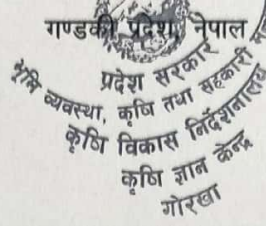 गण्डकी प्रदेश, नेपाल
प्रदेश सरकार
भूमि व्यवस्था, कृषि तथा सहकारी
कृषि विकास निर्देशनालय
कृषि ज्ञान केन्द्र
गोरखा